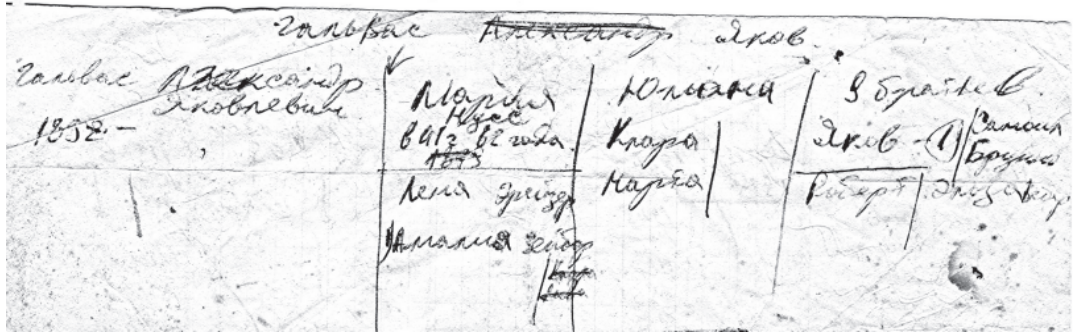 Гальвас Александр Яков.
Гальвас Александр
Яковлевич
1892 -
Мария
Нусс
в 41г 62 года
Лена
Амалия Зейбер
Юлиана
Клара
Марта
3 братьев
Яков - 1
Самоил
Бруно
Роберт Элиза